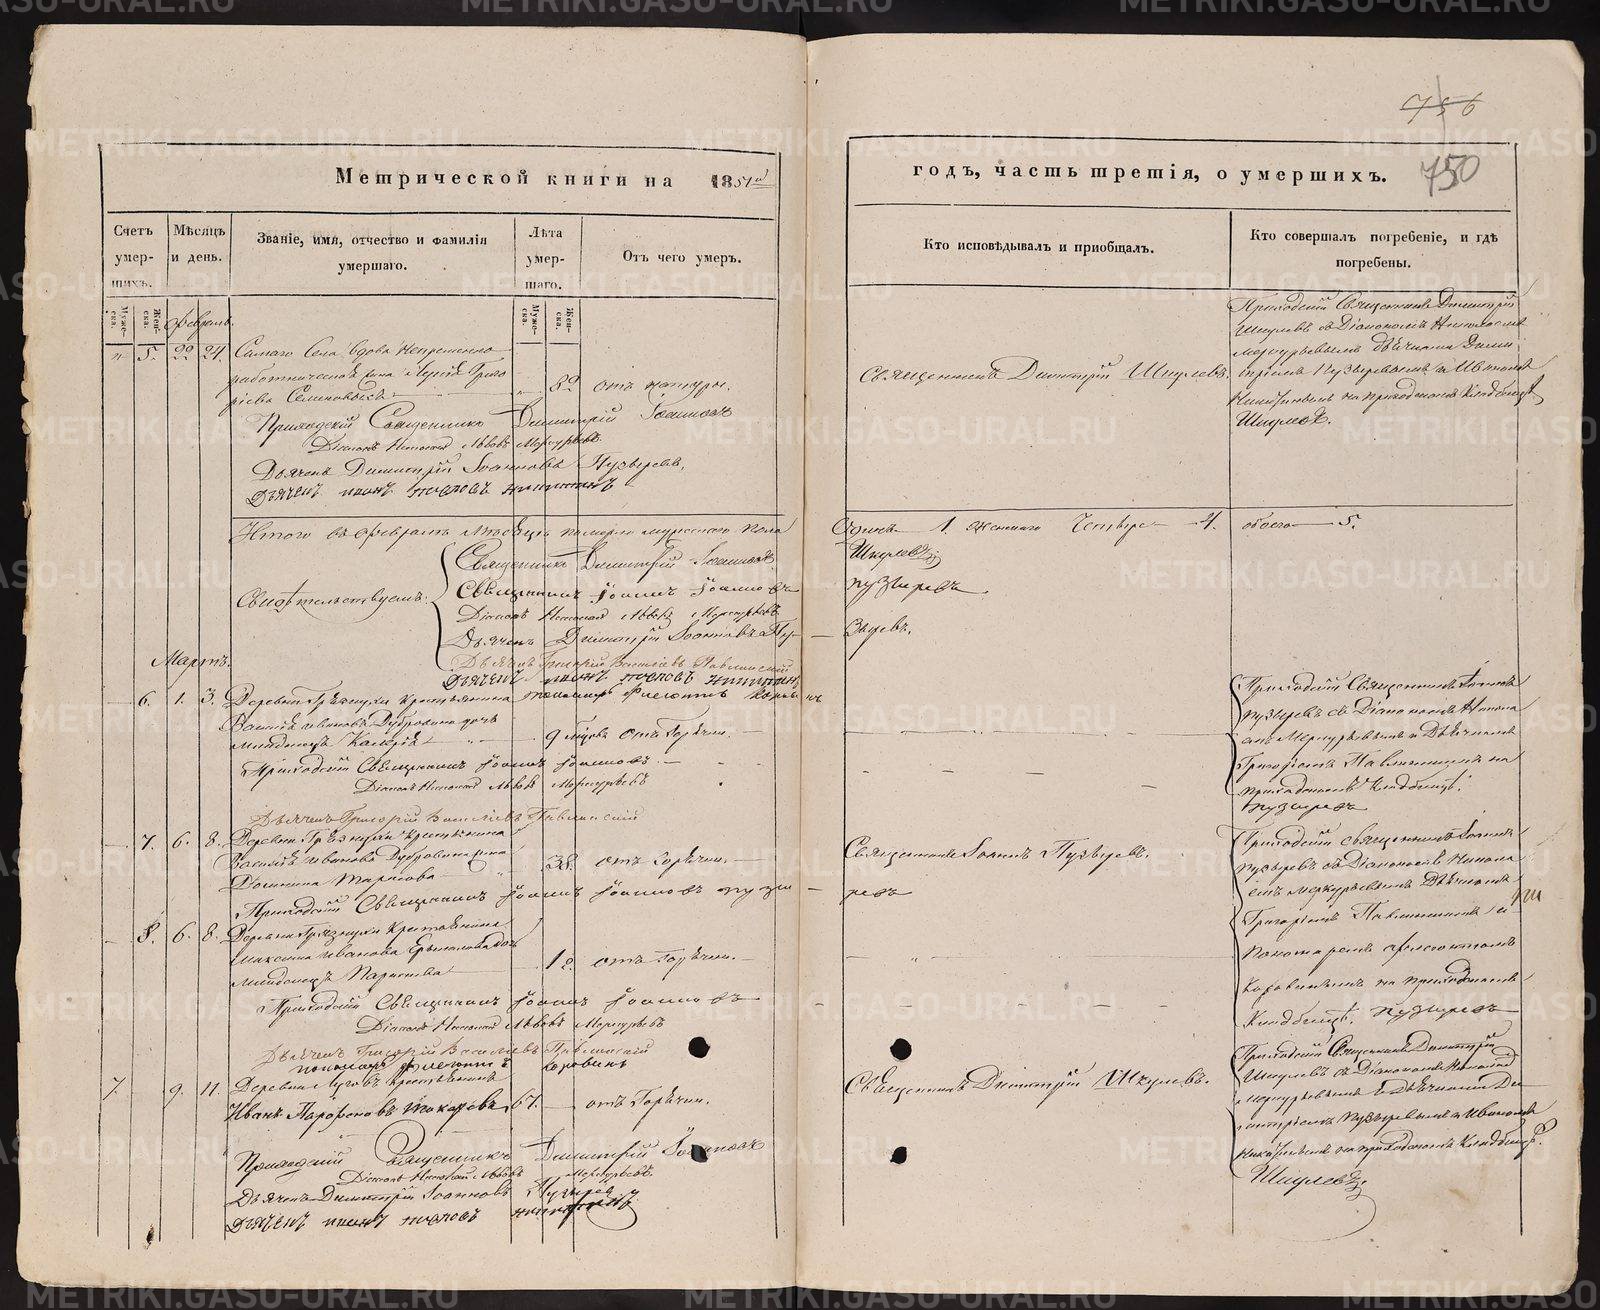 Метрической книги на 1851й
Счетъ умершихъ.
Мѣсяцъ и день.
Званіе, имя, отчество и фамилія умершаго.
Лѣта умершаго.
Отъ чего умеръ.
Мужеска.
Женска.
Мужеска.
Женска.
февраль.
5. 22 24. Самаго Села вдова Непременно
работническая жена
рієва 82 отъ натуры.
Приходскій Священникъ Димитрій Іоанновъ
Діаконъ Николай Львовъ Меркурьевъ
Дьячекъ Димитрій Іоанновъ Пузыревъ.
Дьячекъ иванъ никитинъ
Итого въ февралѣ Мѣсяцѣ померло мужеска пола
Свидѣтельствуемъ:
Священникъ Димитрій Іоанновъ
Священникъ Іоаннъ Іоанновъ
Діаконъ Николай Львовъ Меркурьевъ
Дьячекъ Димитрій Іоанновъ Пу-
Дьячекъ Григорій Васильевъ Павлинскій
Дьячекъ иванъ никитинъ
Мартъ.
6. 1. 3. Деревни Грязнухи Крестьянина
Василья Иванова Дубровина дочь
младенецъ Калерія 9 отъ Горячки.
Приходскій Священникъ Іоаннъ Іоанновъ
Діаконъ Николай Львовъ Меркурьевъ
Дьячекъ Григорій Васильевъ Павлинскій
7. 6. 8. Деревни Грязнухи Крестьянина
Василья Иванова Дубровина жена
Домнина Тарасова 38. отъ Горячки.
Приходскій Священникъ Іоаннъ Іоанновъ пузы-
8. 6. 8. Деревни Грязнухи Крестьянина
Максима Иванова дочь
младенецъ 1 отъ Горячки.
Приходскій Священникъ Іоаннъ Іоанновъ
Діаконъ Николай Львовъ Меркурьевъ
Дьячекъ Григорій Васильевъ Павлинскій
пономарь коровинъ
7. 9. 11. Деревни Крестьянинъ
Иванъ Парфеновъ Токаревъ 67. отъ Горячки.
Приходскій Священникъ Димитрій Іоанновъ
Діаконъ Николай Львовъ Меркурьевъ.
Дьячекъ Димитрій Іоанновъ Пузыревъ
Дьячекъ иванъ никитинъ
756
750
годъ, часть третія, о умершихъ.
Кто исповѣдывалъ и приобщалъ.
Кто совершалъ погребеніе, и гдѣ погребены.
Священникъ Димитрій Шкулевъ.
Приходскій Священникъ Димитрій
Шкулевъ съ Діакономъ Николаемъ
Меркурьевымъ дьячками Дими-
тріемъ Пузыревымъ и Иваномъ
Никитинымъ на приходскомъ Кладбищѣ
Шкулевъ.
Одинъ 1. женскаго Четыре 4. обоего 5.
Шкулевъ
пузыревъ.
зыревъ.
Приходскій Священникъ Іоаннъ
пузыревъ съ Діакономъ Никола-
емъ Меркурьевымъ и Дьячкомъ
Григоріемъ Павлинскимъ на
приходскомъ Кладбищѣ.
пузыревъ
Священникъ Іоаннъ Пузыревъ.
ревъ
Приходскій священникъ Іоаннъ
пузыревъ съ Діакономъ Никола-
емъ меркурьевымъ Дьячкомъ
Григоріемъ Павлинскимъ и
Пономаремъ
Коровинымъ на приходскомъ
Кладбищѣ. пузыревъ
Священникъ Димитрій Шкулевъ.
Приходскій Священникъ Димитрій
Шкулевъ съ Діакономъ Николаемъ
Меркурьевымъ и дьячками Ди-
митріемъ пузыревымъ и Иваномъ
Никитинымъ на приходскомъ Кладбищѣ.
Шкулевъ
METRIKI.GASO-URAL.RU